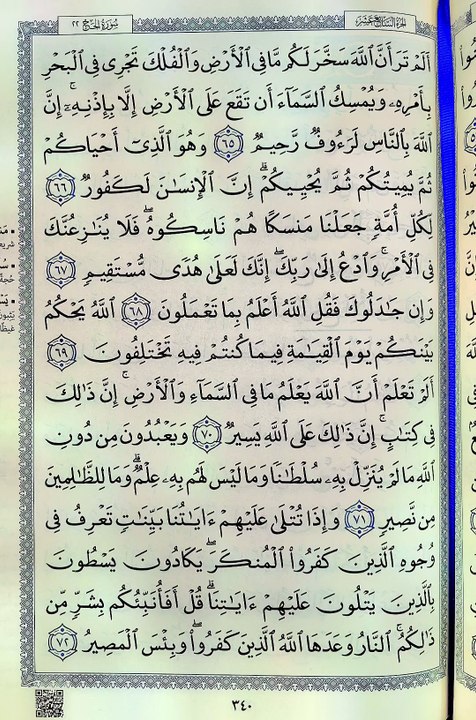 سُورَةُ الحَجِّ ٢٢
الجُزْءُ السَّابِعَ عَشَرَ
أَلَمْ تَرَ أَنَّ ٱللَّهَ سَخَّرَ لَكُم مَّا فِى ٱلْأَرْضِ وَٱلْفُلْكَ تَجْرِى فِى ٱلْبَحْرِ
بِأَمْرِهِۦ وَيُمْسِكُ ٱلسَّمَآءَ أَن تَقَعَ عَلَى ٱلْأَرْضِ إِلَّا بِإِذْنِهِۦٓ ۗ إِنَّ
ٱللَّهَ بِٱلنَّاسِ لَرَءُوفٌ رَّحِيمٌ ٦٥ وَهُوَ ٱلَّذِىٓ أَحْيَاكُمْ
ثُمَّ يُمِيتُكُمْ ثُمَّ يُحْيِيكُمْ ۗ إِنَّ ٱلْإِنسَٰنَ لَكَفُورٌ ٦٦
لِكُلِّ أُمَّةٍ جَعَلْنَا مَنسَكًا هُمْ نَاسِكُوهُ ۖ فَلَا يُنَٰزِعُنَّكَ
فِى ٱلْأَمْرِ ۚ وَٱدْعُ إِلَىٰ رَبِّكَ ۖ إِنَّكَ لَعَلَىٰ هُدًى مُّسْتَقِيمٍ ٦٧
وَإِن جَٰدَلُوكَ فَقُلِ ٱللَّهُ أَعْلَمُ بِمَا تَعْمَلُونَ ٦٨ ٱللَّهُ يَحْكُمُ
بَيْنَكُمْ يَوْمَ ٱلْقِيَٰمَةِ فِيمَا كُنتُمْ فِيهِ تَخْتَلِفُونَ ٦٩
أَلَمْ تَعْلَمْ أَنَّ ٱللَّهَ يَعْلَمُ مَا فِى ٱلسَّمَآءِ وَٱلْأَرْضِ ۗ إِنَّ ذَٰلِكَ
فِى كِتَٰبٍ ۚ إِنَّ ذَٰلِكَ عَلَى ٱللَّهِ يَسِيرٌ ٧٠ وَيَعْبُدُونَ مِن دُونِ
ٱللَّهِ مَا لَمْ يُنَزِّلْ بِهِۦ سُلْطَٰنًا وَمَا لَيْسَ لَهُم بِهِۦ عِلْمٌ ۗ وَمَا لِلظَّٰلِمِينَ
مِن نَّصِيرٍ ٧١ وَإِذَا تُتْلَىٰ عَلَيْهِمْ ءَايَٰتُنَا بَيِّنَٰتٍ تَعْرِفُ فِى
وُجُوهِ ٱلَّذِينَ كَفَرُوا۟ ٱلْمُنكَرَ ۖ يَكَادُونَ يَسْطُونَ
بِٱلَّذِينَ يَتْلُونَ عَلَيْهِمْ ءَايَٰتِنَا ۗ قُلْ أَفَأُنَبِّئُكُم بِشَرٍّ مِّن
ذَٰلِكُمُ ۗ ٱلنَّارُ وَعَدَهَا ٱللَّهُ ٱلَّذِينَ كَفَرُوا۟ ۖ وَبِئْسَ ٱلْمَصِيرُ ٧٢
٣٤٠